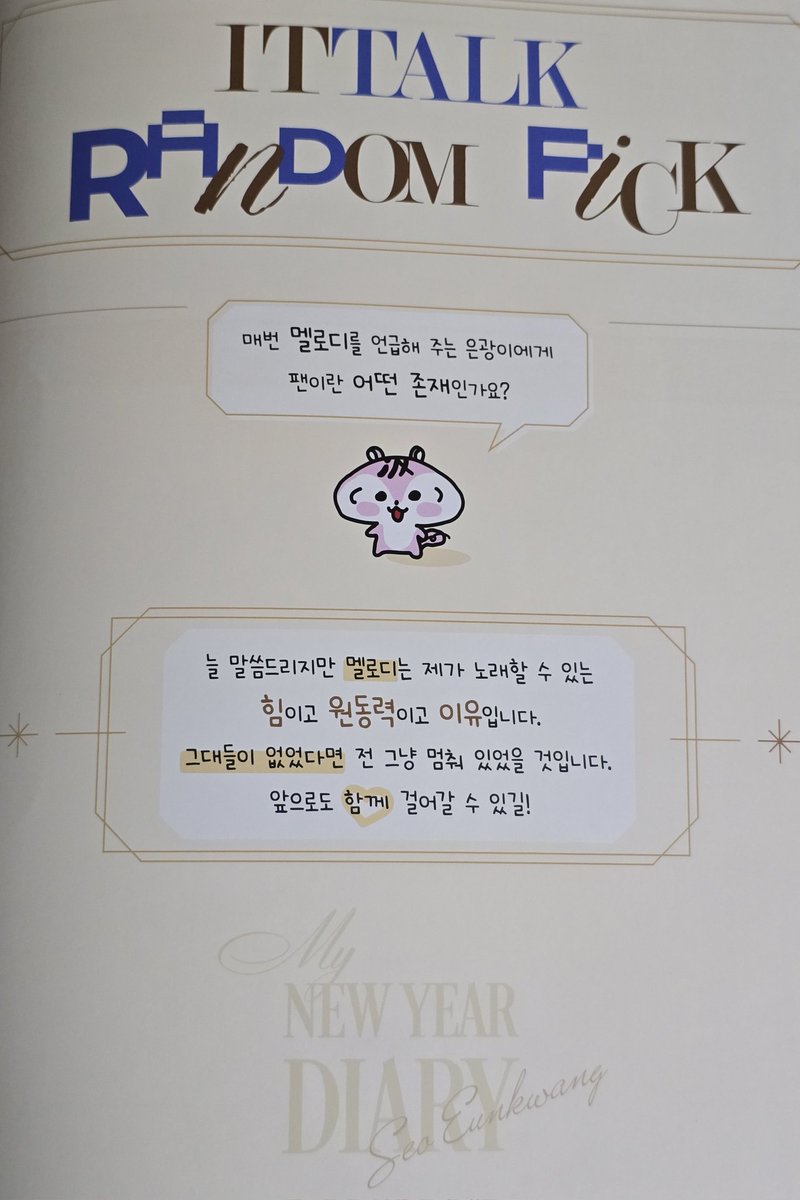 ITTALK
RAnDOM PiCK
매번 멜로디를 언급해 주는 은광이에게
팬이란 어떤 존재인가요?
늘 말씀드리지만 멜로디는 제가 노래할 수 있는
힘이고 원동력이고 이유입니다.
그대들이 없었다면 전 그냥 멈춰 있었을 것입니다.
앞으로도 함께 걸어갈 수 있길!
My
NEW YEAR
DIARY
Seo Eunkwang